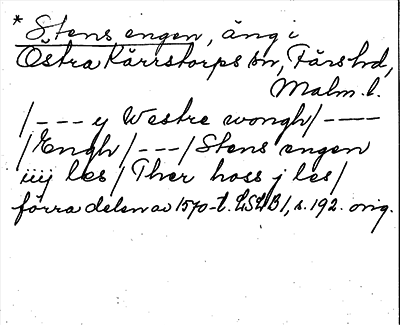 * Stens engen, äng i
Östra Kärrstorps sn, Färs hd,
Malm. l.
/--- y Westre wongh/----
/Engh/---/Stens engen
iiij les/Ther hoss j les/
förra delen av 1570-t. LSLB 1, s. 192. orig.